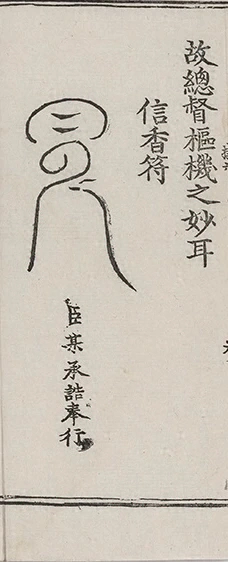 故總督樞機之妙耳
信香符
臣某承誥奉行